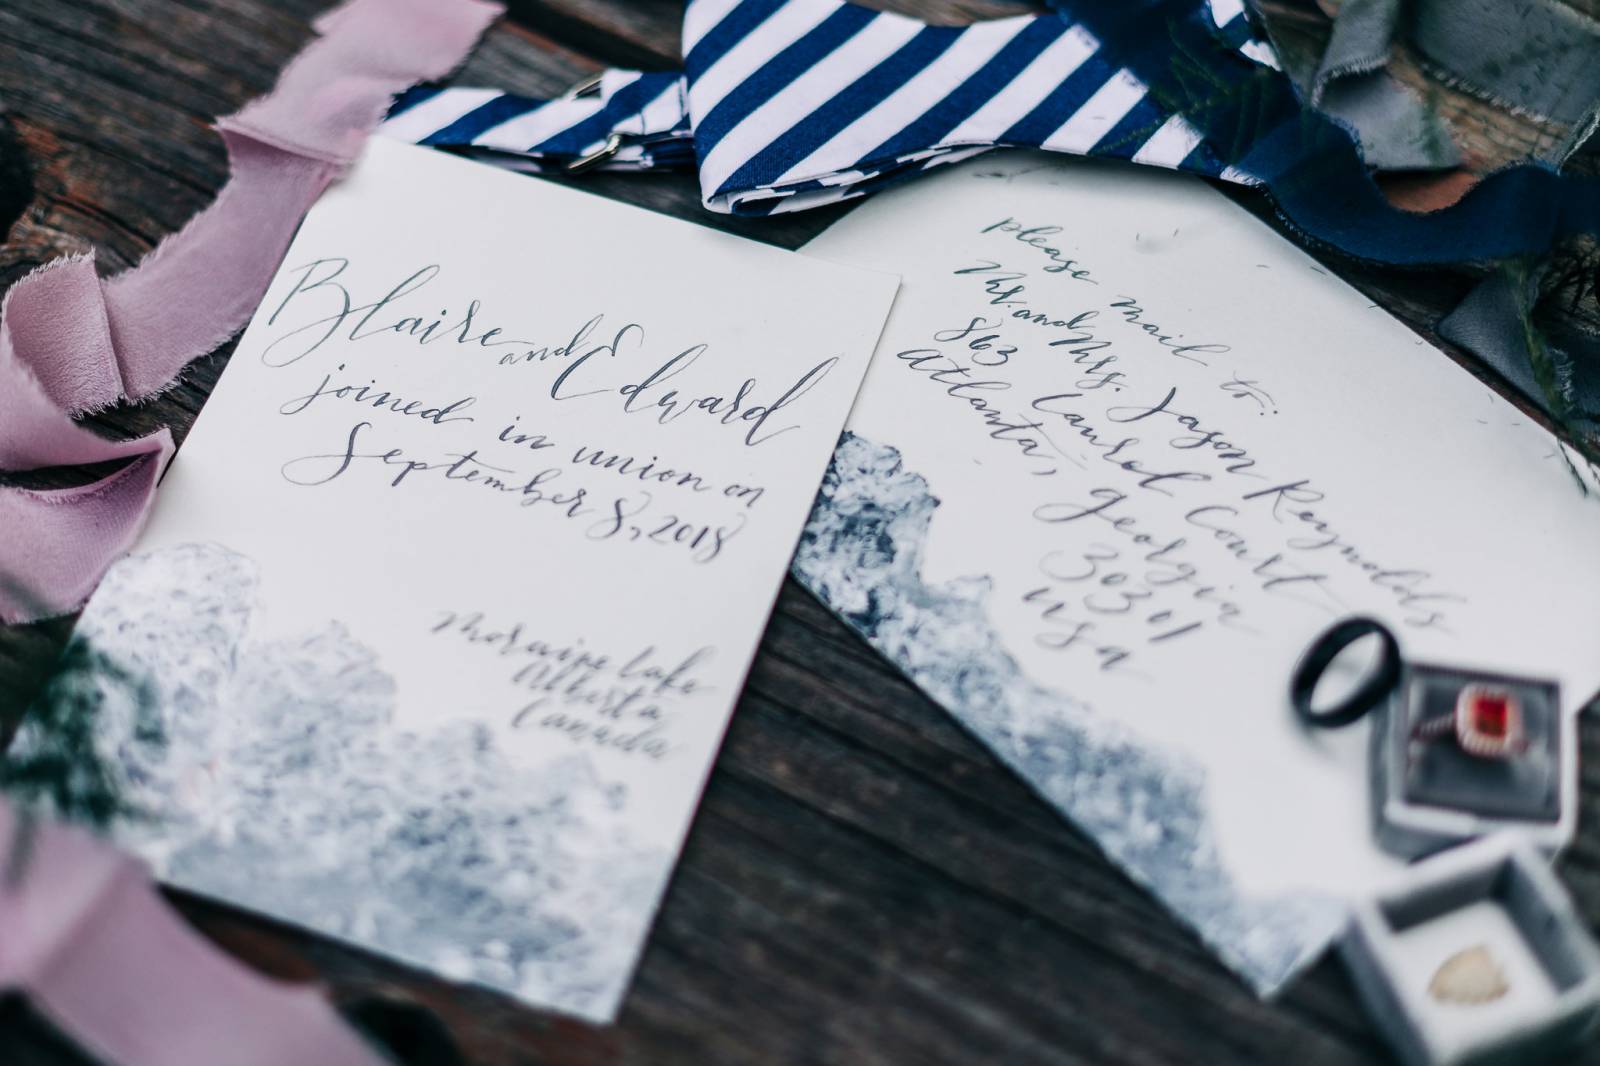 Blaire and Edward
joined in union on
September 8, 2018
Moraine Lake
Alberta
Canada
please mail to:
Mr. and Mrs. Jason Reynolds
863 Laurel Court
Atlanta, Georgia
30301
USA